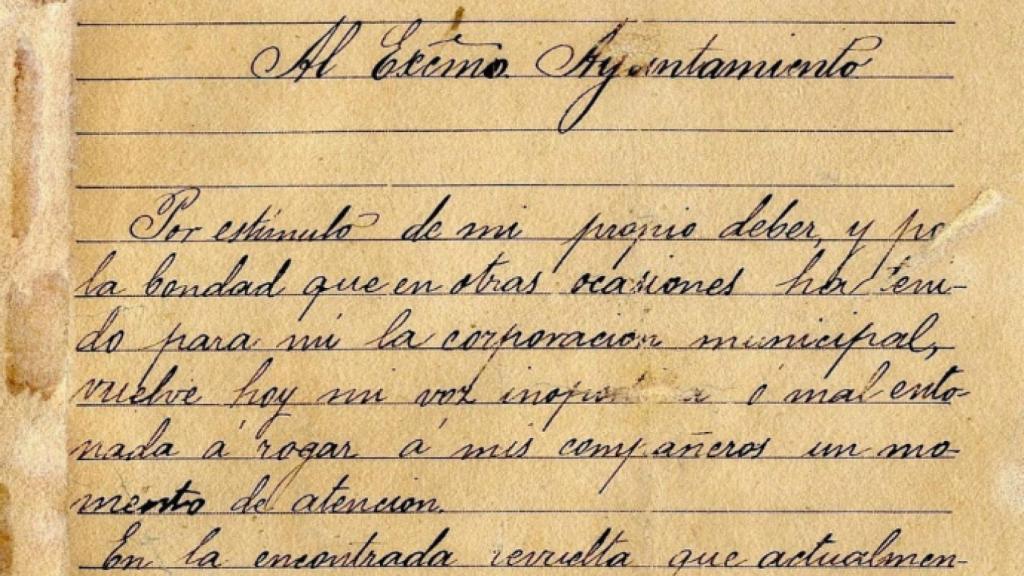 Al Excmo. Ayuntamiento
Por estímulo de mi propio deber, y po
la bondad que en otras ocasiones ha teni-
do para mi la corporación municipal,
vuelve hoy mi voz ó mal ento-
nada á rogar á mis compañeros un mo-
mento de atencion.
En la encontrada revuelta que actualmen-